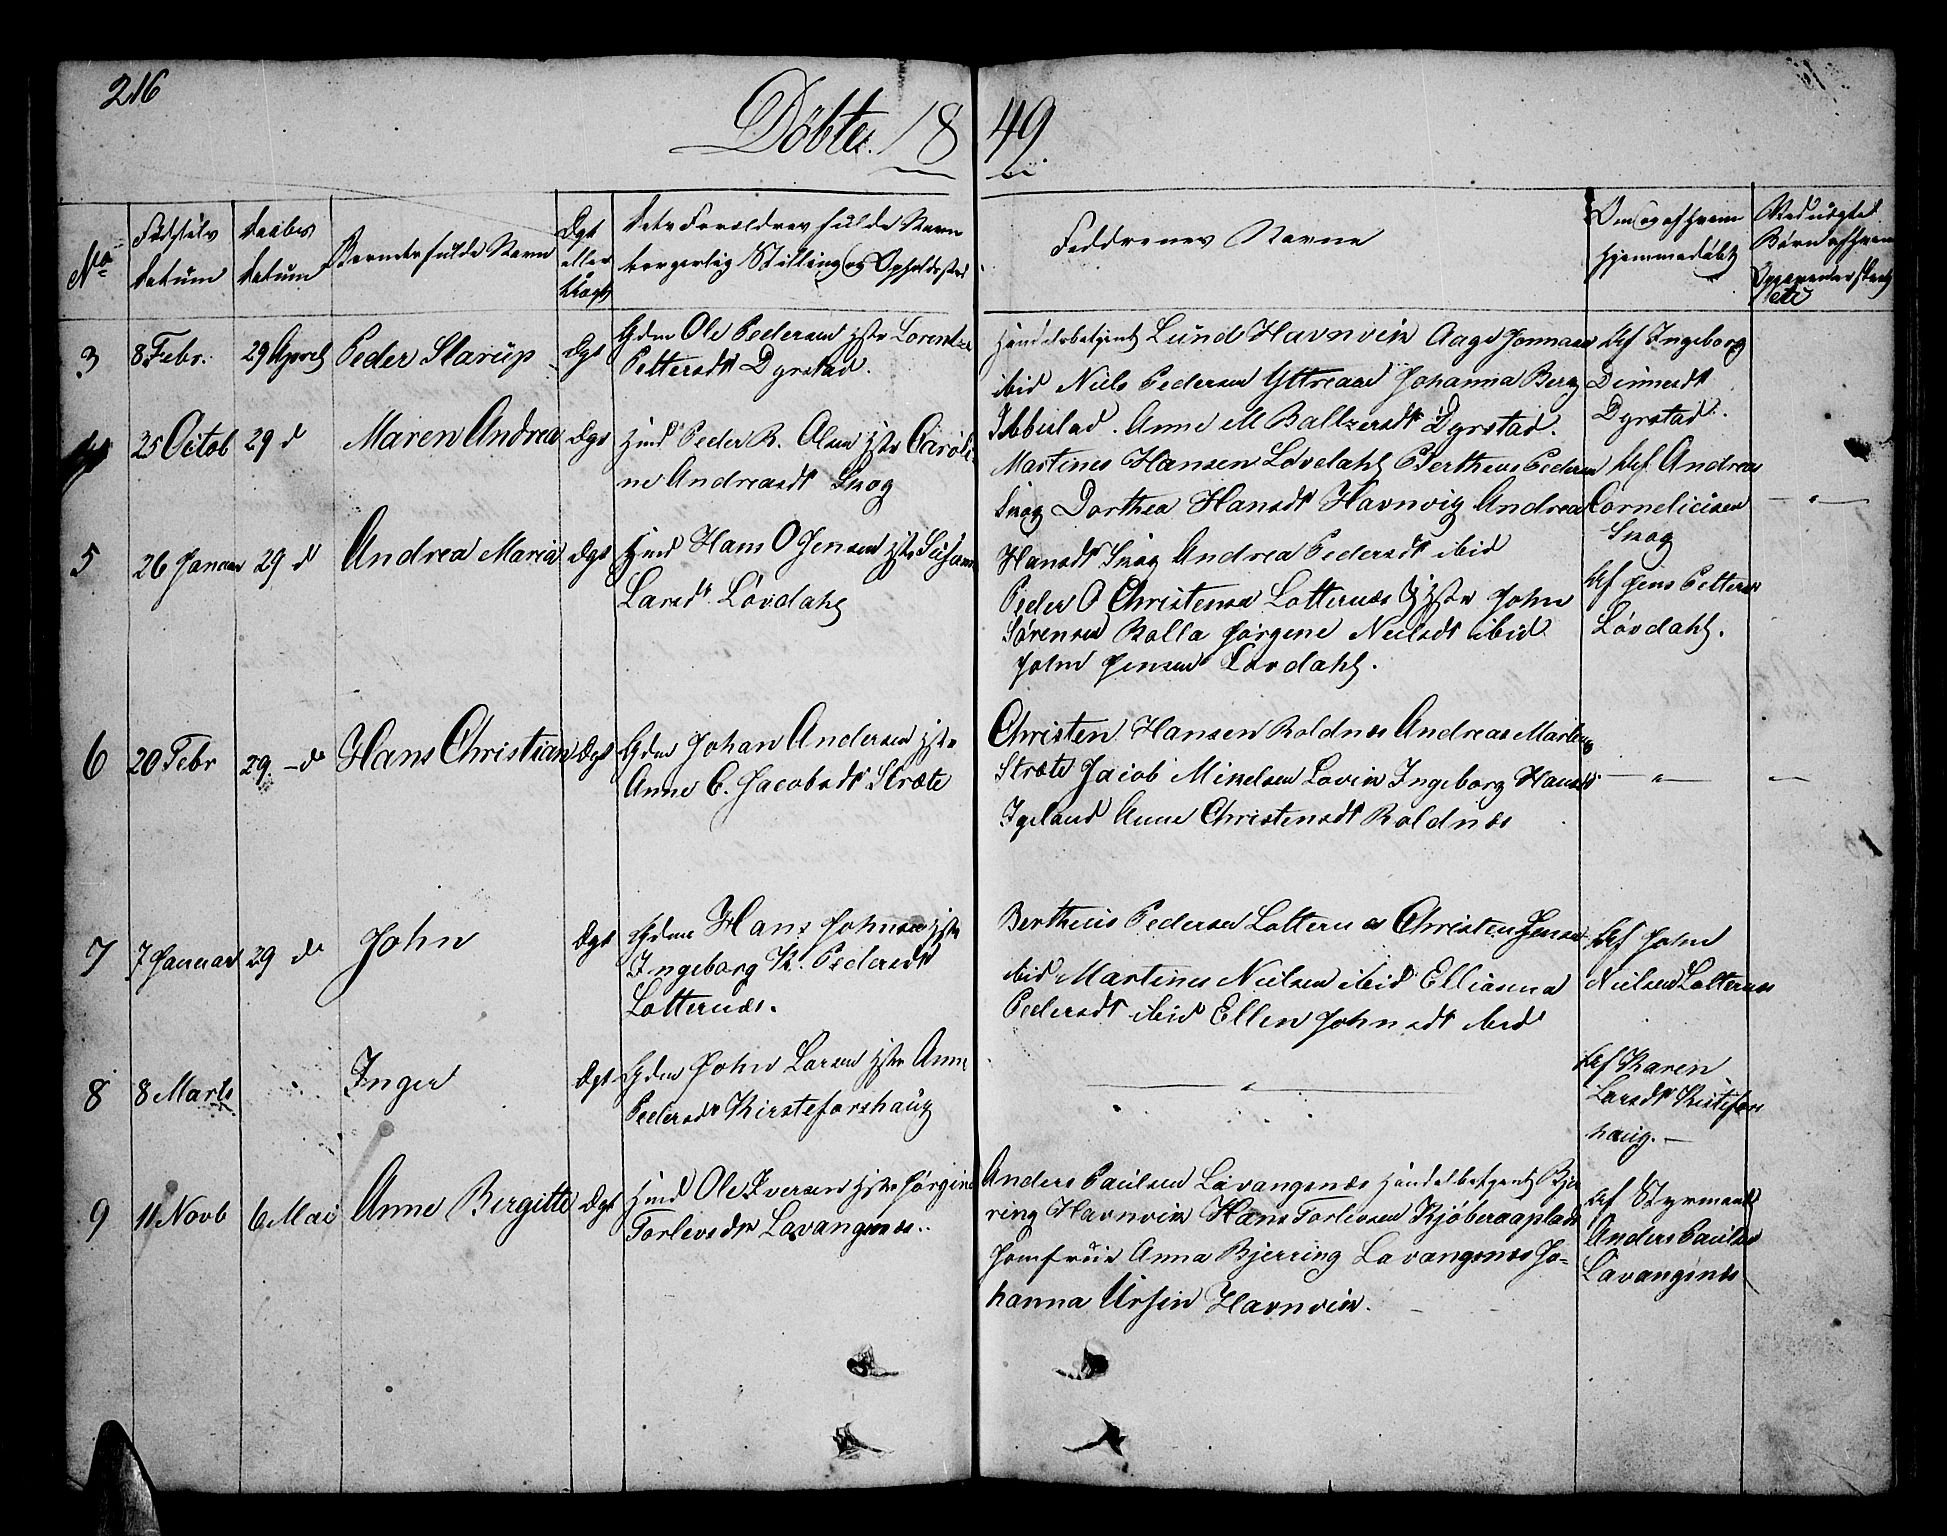 216
Döbte 18 49.
No
Födsels datum
Daabs datum
Barnets fulde Navn
Dgt eller Uægt
Forældres fulde Navn borgerlig Stilling og Opholdssted
Faddrenes Navne
Om og af hvem hjemmedöbt
3 8 Febr. 29 April Peder Slarup Dgt Gdm Ole Pedersen Hstr Lorentze
Pettersdt Dyrstad.
Handelsbetjent Lund Havnvik Aage Jonnasen
ibid Niels Pedersen Yttreaae Johanna Berg
Ibbestad. Anne M Baltzersdt Dyrstad.
Af Ingeborg
Dinnesdt
Dyrstad.
4 25 Octob 29 d Maren Andrea Dgt Hmd Peder R. Olsen Hstr Caroli
ne Andreasdt Skog
Martines Hansen Lövdahl Bertheus Pedersen
Skog Dorthea Hansdt Havnvig Andrea
Hansdt Skog Andrea Pedersdt ibid
Af Andreas
Corneliusen
Skog
5 26 Januar 29 d Andrea Maria Dgt Hmd Hans O Jensen Hstr Susann
Larsdt. Lövdahl
Peder O Christensen Lotternæs Hstr John
Sörensen Rolla Jörgene Nielsdt ibid
John Jensen Lövdahl.
Af Jens Petterse
Lövdahl.
6 20 Febr 29 - d Hans Christian Dgt Gdm Johan Andersen Hstr
Anne C. Jacobsdt Stræte
Christen Hansen Roldnes Andreas Martinus
Stræte Jacob Mikelsen Lavik Ingeborg Hansdt
Igeland Anne Christensdt Roldnæs
7 7 Januar 29 d John Dgt Gdm Hans Johnsen Hstr
Ingeborg K. Pedersdt
Lotternæs.
Bertheus Pedersen Lotternæs Christen Jensen
ibid Martines Nielsen ibid Elliasena
Pedersdt ibid Ellen Johnsdt ibid
Af John
Nielsen Lotternæs
8 8 Marts Inger Dgt Gdm John Larsen Hstr Anne
Pedersdt Kirsteforshaug
Af Karen
Larsdt Kistefos
haug. -
9 11 Novb 6 Mai Anne Bergitte Dgt Hmd Ole Iversen Hstr Jörgine
Torlevsdt Lavangsnæs.
Anders Paulsen Lavangsnæs Handelsbetjent Bjer
ring Havnvik Hans Torlevsen Kjöberaaplads
Jomfrue Anna Bjerring Lavangsnes Jo-
hanna Ursin Havnvik.
Af Styrmand
Anders Paulsen
Lavangsnes